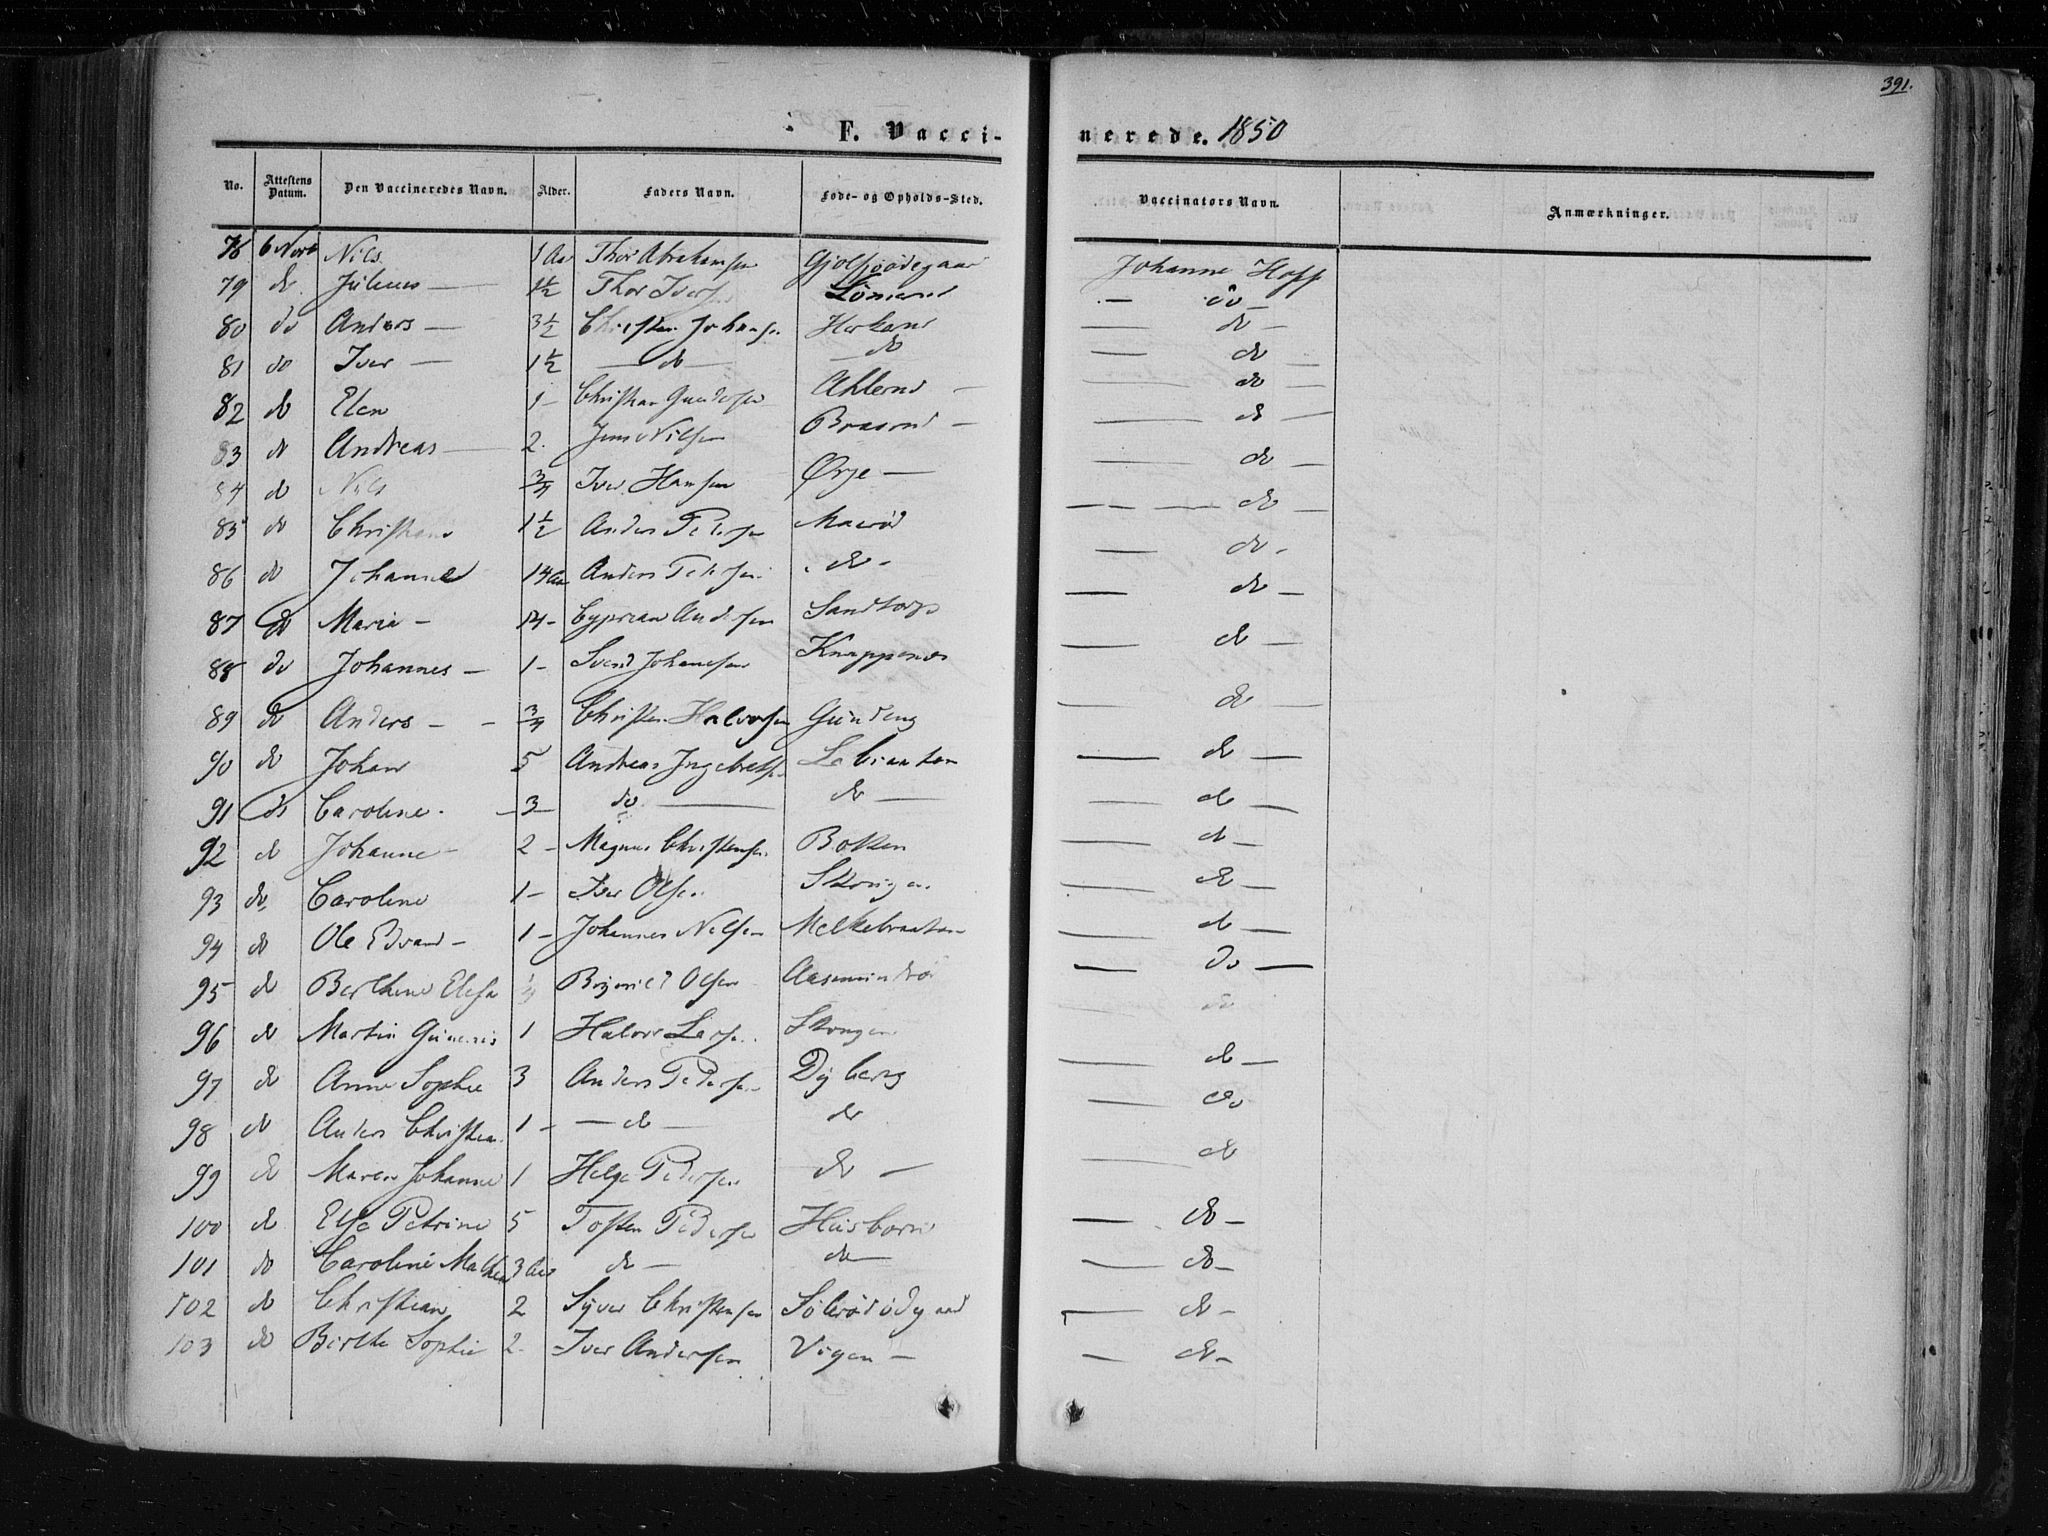 391.
F. Vaccinerede. 1850
No. Attestens Datum. Den Vaccineredes Navn. Alder. Faders Navn. Føde- og Opholds-Sted. Vaccinators Navn. Anmærkninger.
78 6 Novb Nils 1 Aar Thor Abrahamsen Johanne Hoff
79 do Julius — 1½ Thor Iversen — do —
80 do Anders — 3½ Christen Johansen — do —
81 do Iver — 1½ — do — — do — — do —
82 do Elen 1 — Christian Gundersen — do —
83 do Andreas — 2. Jens Nilsen — do —
84 do Nils ¾ Iver Hansen Ørje — — do —
85 do Christian 1½ Anders Pedersen — do —
86 do Johanne 14 Aar Anders Pedersen do — — do —
87 do Maria — 14 — Cyprian Andersen Sandtorp — do —
88 do Johannes — 1 — Svend Johanesen Knappenæs — do —
89 do Anders — ¾ Christen Halvorsen — do —
90 do Johan 5 Andreas Ingebretsen — do —
91 do Caroline. — 3 — do — do — — do —
92 do Johanne — 2 — Magnus Christensen — do —
93 do Caroline 1 — Iver Olsen Skougen — do —
94 do Ole Edvard — 1 — Johannes Nilsen Melkebraaten — do —
95 do Berthine Elisa Olsen — do —
96 do Martin 1 Halvor Larsen Skougen do
97 do Anne Sophie 3 Anders Pedersen — do —
98 do Anders Christian 1 — — do — do — do
99 do Maren Johanne 1 Helge Pedersen do — — do
100 do Else Petrine 5 Tosten Pedersen — do —
101 do Caroline Mathea 3 Aar do — do — — do —
102 do Christian 2 Syver Christensen — do —
103 do Birthe Sophie 2. Iver Andersen Vigen — — do —